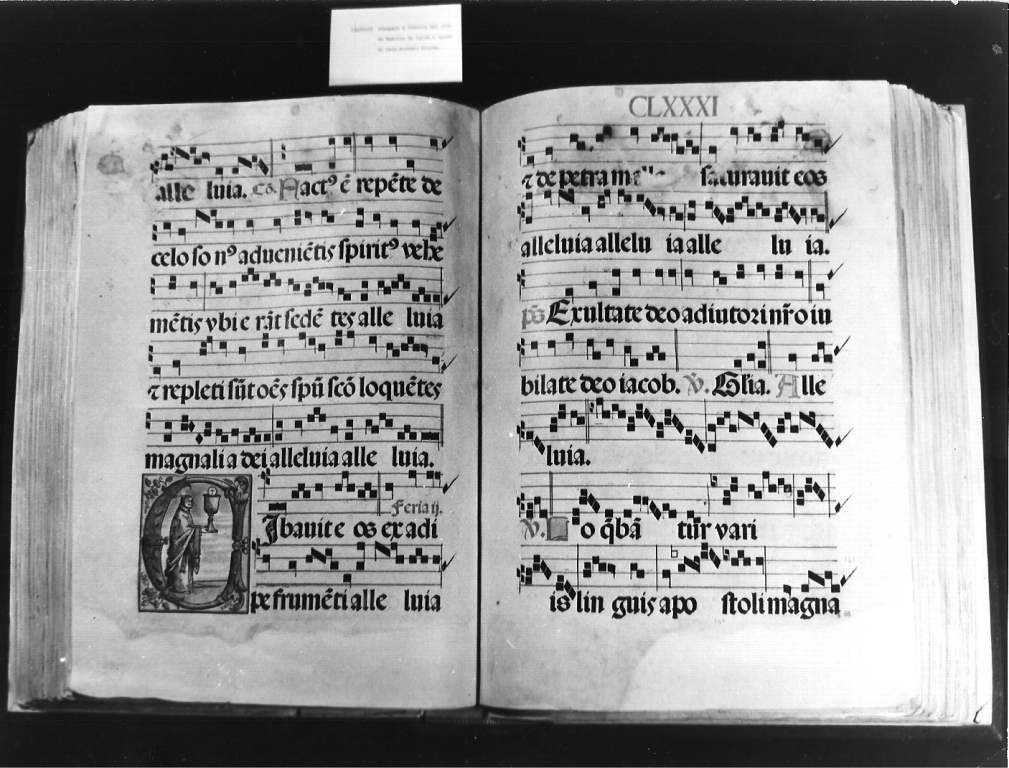 alle luia. Co. Fact⁹ ē repēte de
celo so n⁹ adueniētis spirit⁹ vehe
mētis vbi e rāt sedē tes alle luia
⁊ repleti sūt oēs spū scō loquētes
magnali a dei alleluia alle luia.
Feria ij.
Cibauit e os ex adi
pe frumēti alle luia
CLXXXI
⁊ de petra saturauit eos
alleluia allelu ia alle lu ia.
ps̄ Exultate deo adiutori nr̄o iu
bilate deo iacob. V̄. Glīa. Alle
luia.
V̄. Lo q̄bā tūr vari
is lin guis apo stoli magna